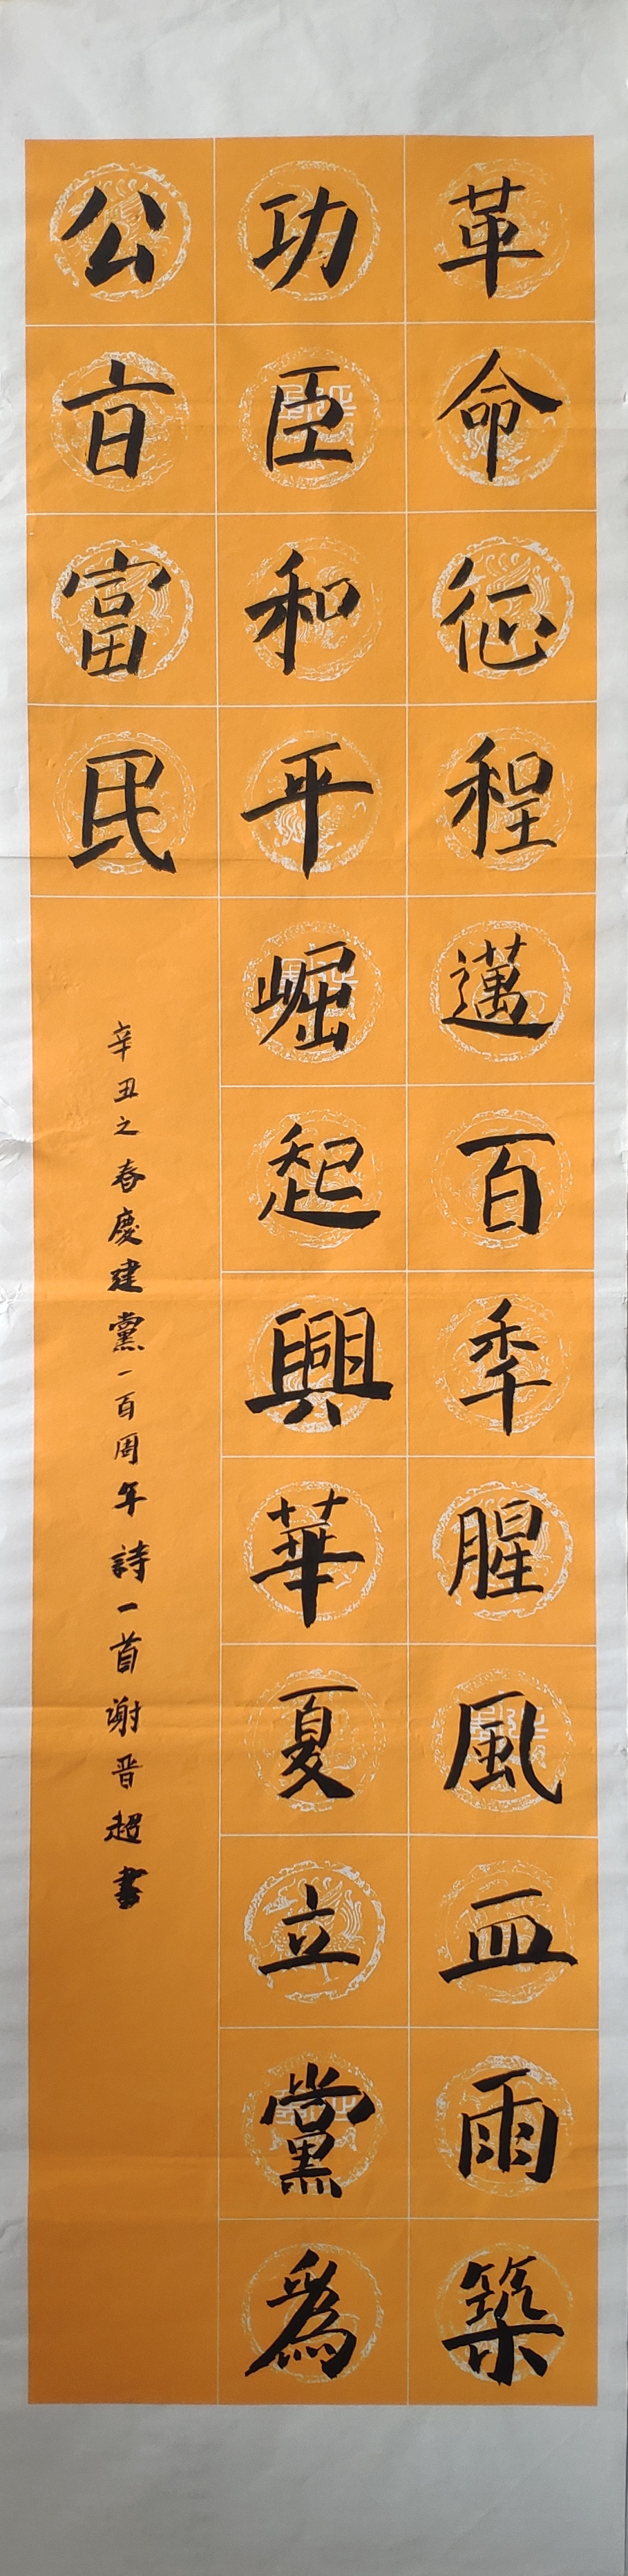 革命征程邁百秊腥風血雨築
功臣和平崛起興華夏立黨爲
公㫖富民
辛丑之春慶建黨一百周年詩一首謝晋超書